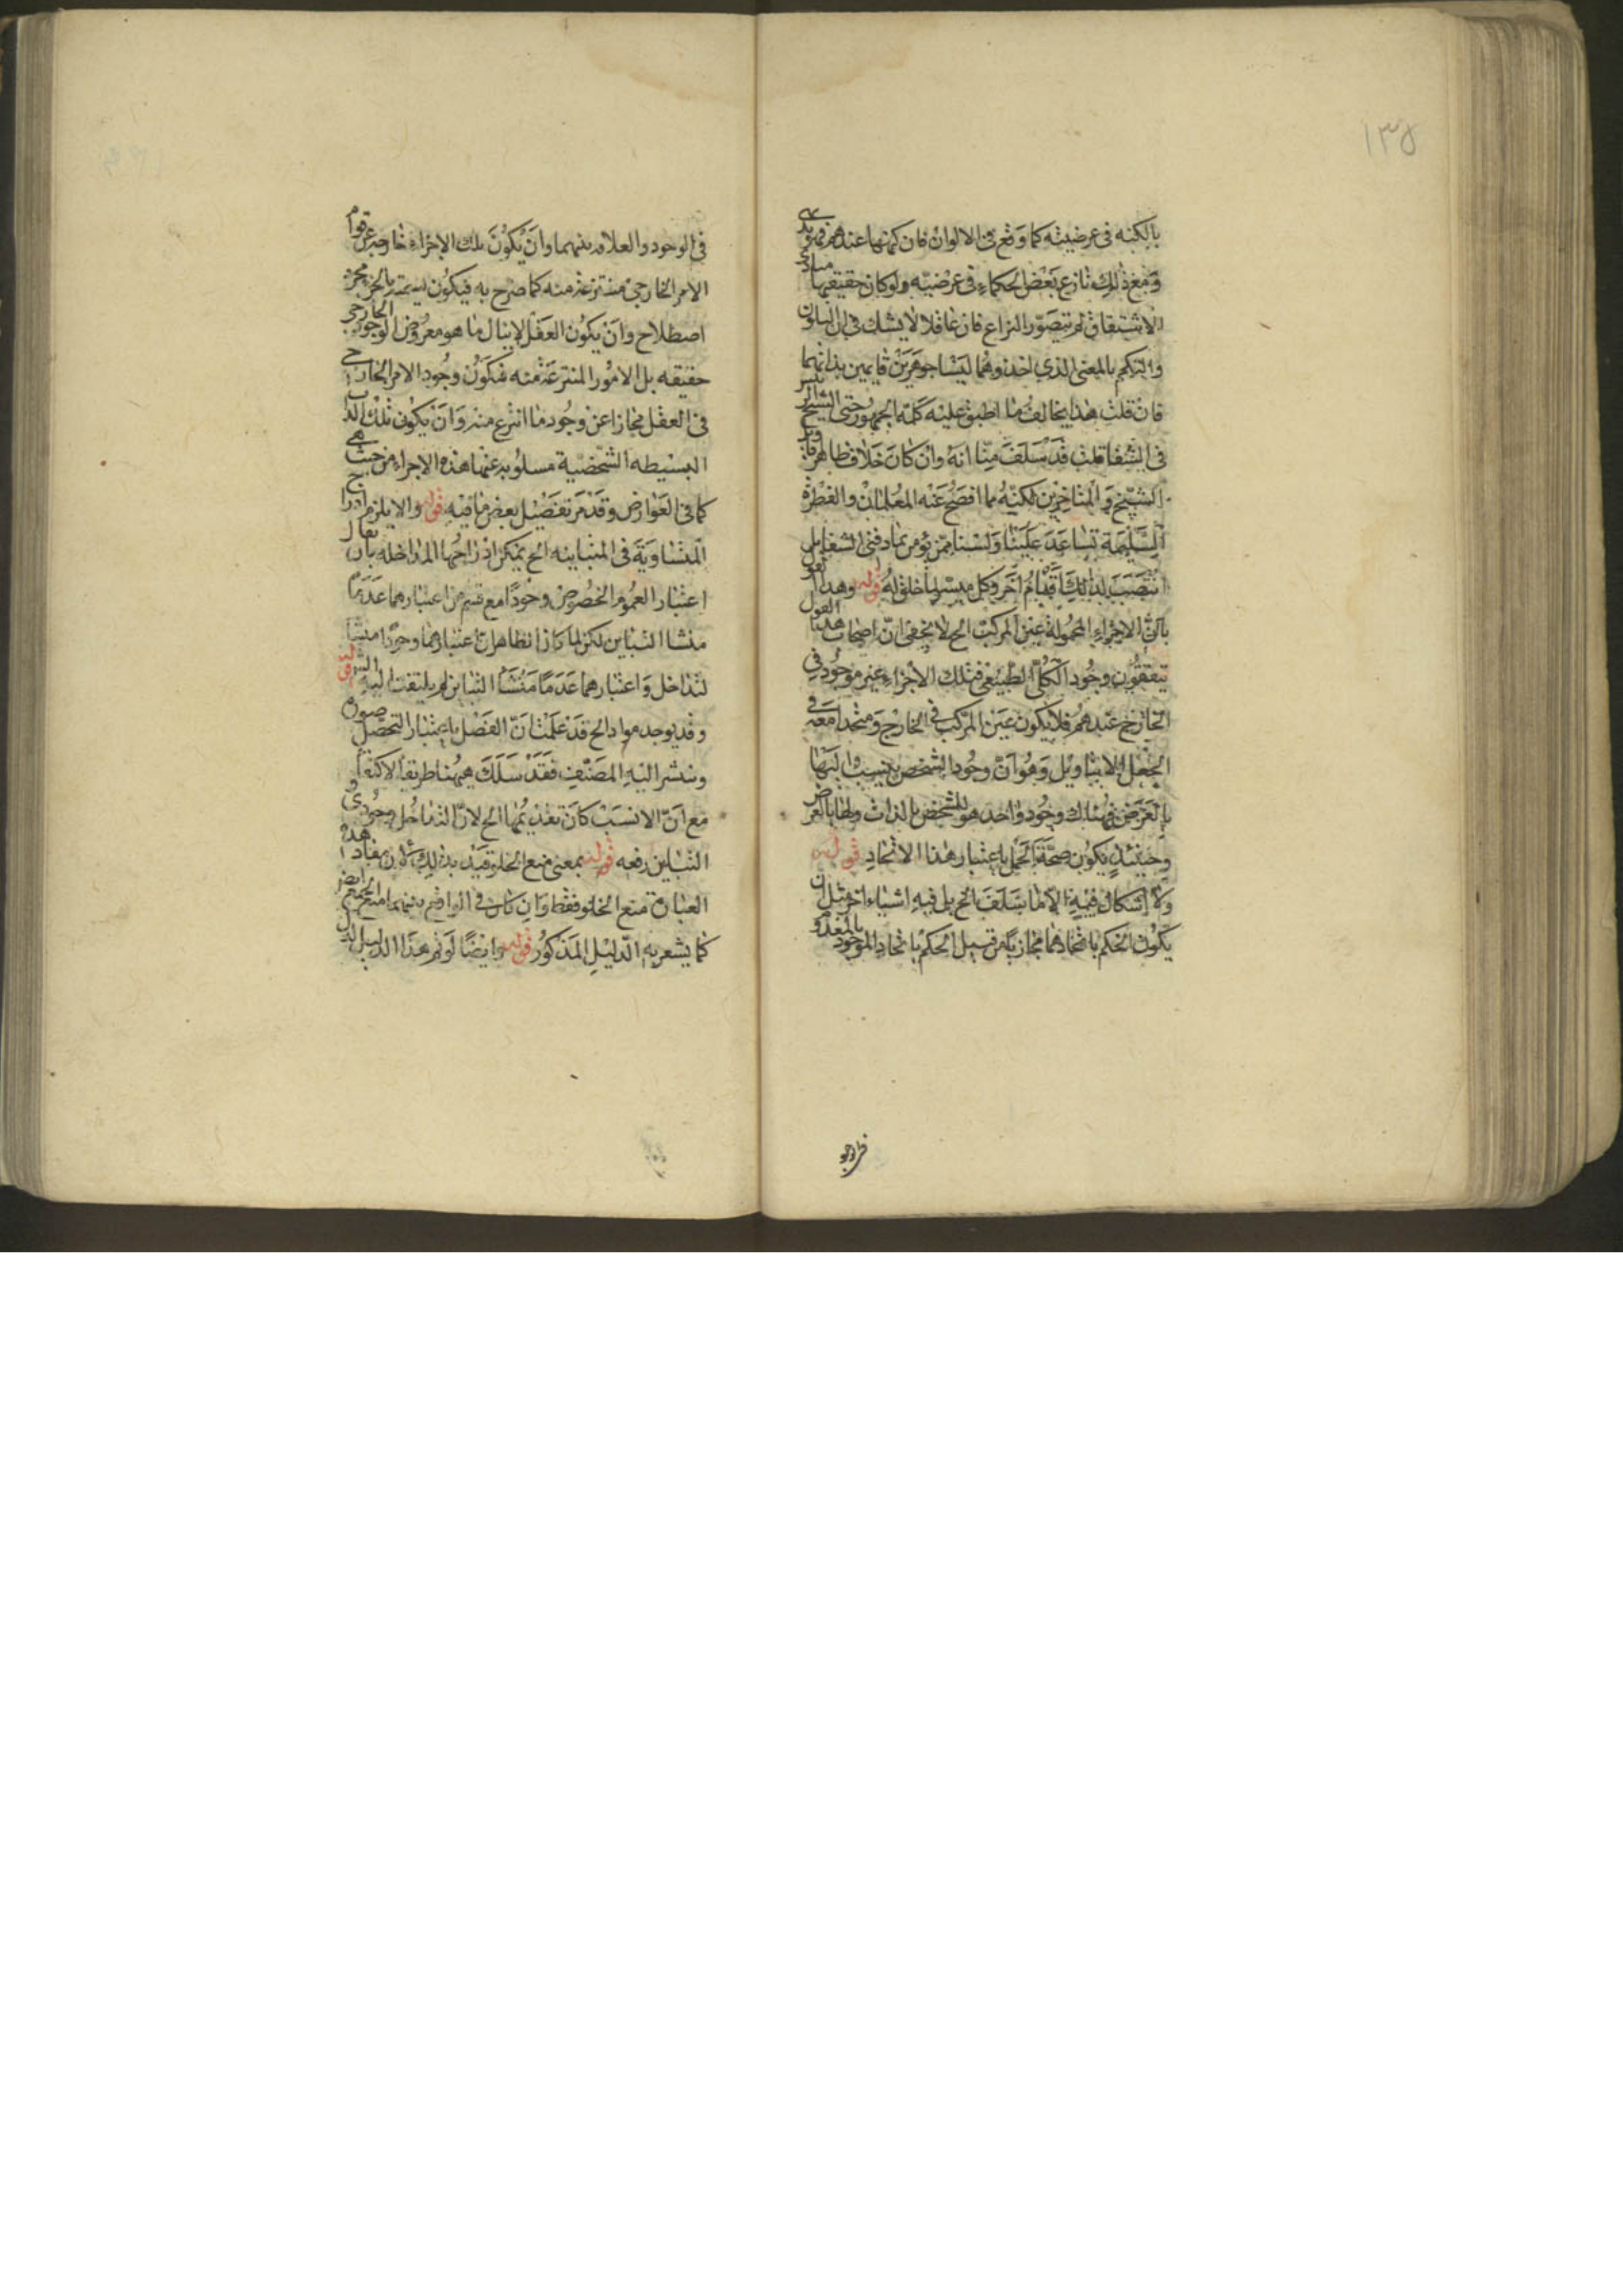 ١٣٥
بالكنه فى عرضيته كما وقع فى الالوان فان كنهها عندهم
ومع ذلك نازع بعض الحكماء فى عرضيته ولو كان حقيقتها مبادى
الاشتقاق لم يتصور النزاع فان عاقلا لا يشك فى ان التلون
والتكمم بالمعنى الذي اخذوهما ليسا جوهرين قايمين بذاتهما
فان قلت هذا يخالف ما اطبق عليه كلمة الجمهور حتى الشيخ الرئيس
فى الشفا قلت قد سلف منا انه وان كان خلاف ظاهر
الشيخ والمتاخرين لكنه مما افصح عنه المعلمان والفطرة
السليمة تساعد علينا ولسنا ممن يؤمن بما دفتى الشفا بل
انتصب لذلك اقوام اخر وكل ميسر لما خلق له قوله وهذا
بان الاجزاء المحمولة عين المركب الخ لا يخفى ان اصحاب هذا القول
ينفون وجود الكلى الطبيعى فتلك الاجزاء غير موجود فى
الخارج عندهم فلا يكون عين المركب فى الخارج ومتحدا معه فى
الجعل الا بتاويل وهو ان وجود الشخص ينسب اليها
بالعرض فهناك وجود واحد هو للشخص بالذات ولها بالعرض
وحينئذ يكون صحة الحمل باعتبار هذا الاتحاد قوله
ولا اشكال فيه الا ما سلف الخ بل فيه اشياء اخر مثل ان
يكون الحكم باتحادهما مجازيا من قبيل الحكم باتحاد الموجود بالمعدوم
فى الوجود
فى الوجود والعلاقه بينهما وان يكون تلك الاجزاء خارجه عن قوام
الامر الخارجى منتزعة منه كما صرح به فيكون تسميته بالجزء مجرد
اصطلاح وان يكون العقل لا ينال ما هو معروض الوجود الخارجى
حقيقه بل الامور المنتزعة منه فيكون وجود الامر الخارجى
فى العقل مجازا عن وجود ما انتزع منه وان يكون تلك الذات
البسيطه الشخصية مسلوبه عنها هذه الاجزاء من حيث هى
كما فى العوارض وقد مر تفصيل بعض ما فيه قوله والا يلزم
المتساوية فى المتباينه الخ يمكن ادراجها المداخله بان يقال
اعتبار العموم والخصوص وجودا مع قسم من اعتبارهما عدما
منشا التباين لكن لما كان الظاهر ان اعتبارهما وجودا منشا
لتداخل واعتبارهما عدما منشأ التباين لم يلتفت اليه قوله
وقد يوجد مواد الخ قد علمت ان الفصل باعتبار التحصل صورة
وسنشر اليه المصنف فقد سلك ههنا طريقا
مع ان الانسب كان تقديمها الخ لان التداخل وجودى و
التباين رفعه قوله بمعنى منع الخلو قيد بذلك لان مفاد هذه
العبارة منع الخلو فقط وان كان فى الواقع بينهما منع الجمع ايضا
كما يشعر به الدليل المذكور قوله وايضا لو تم هذا الدليل